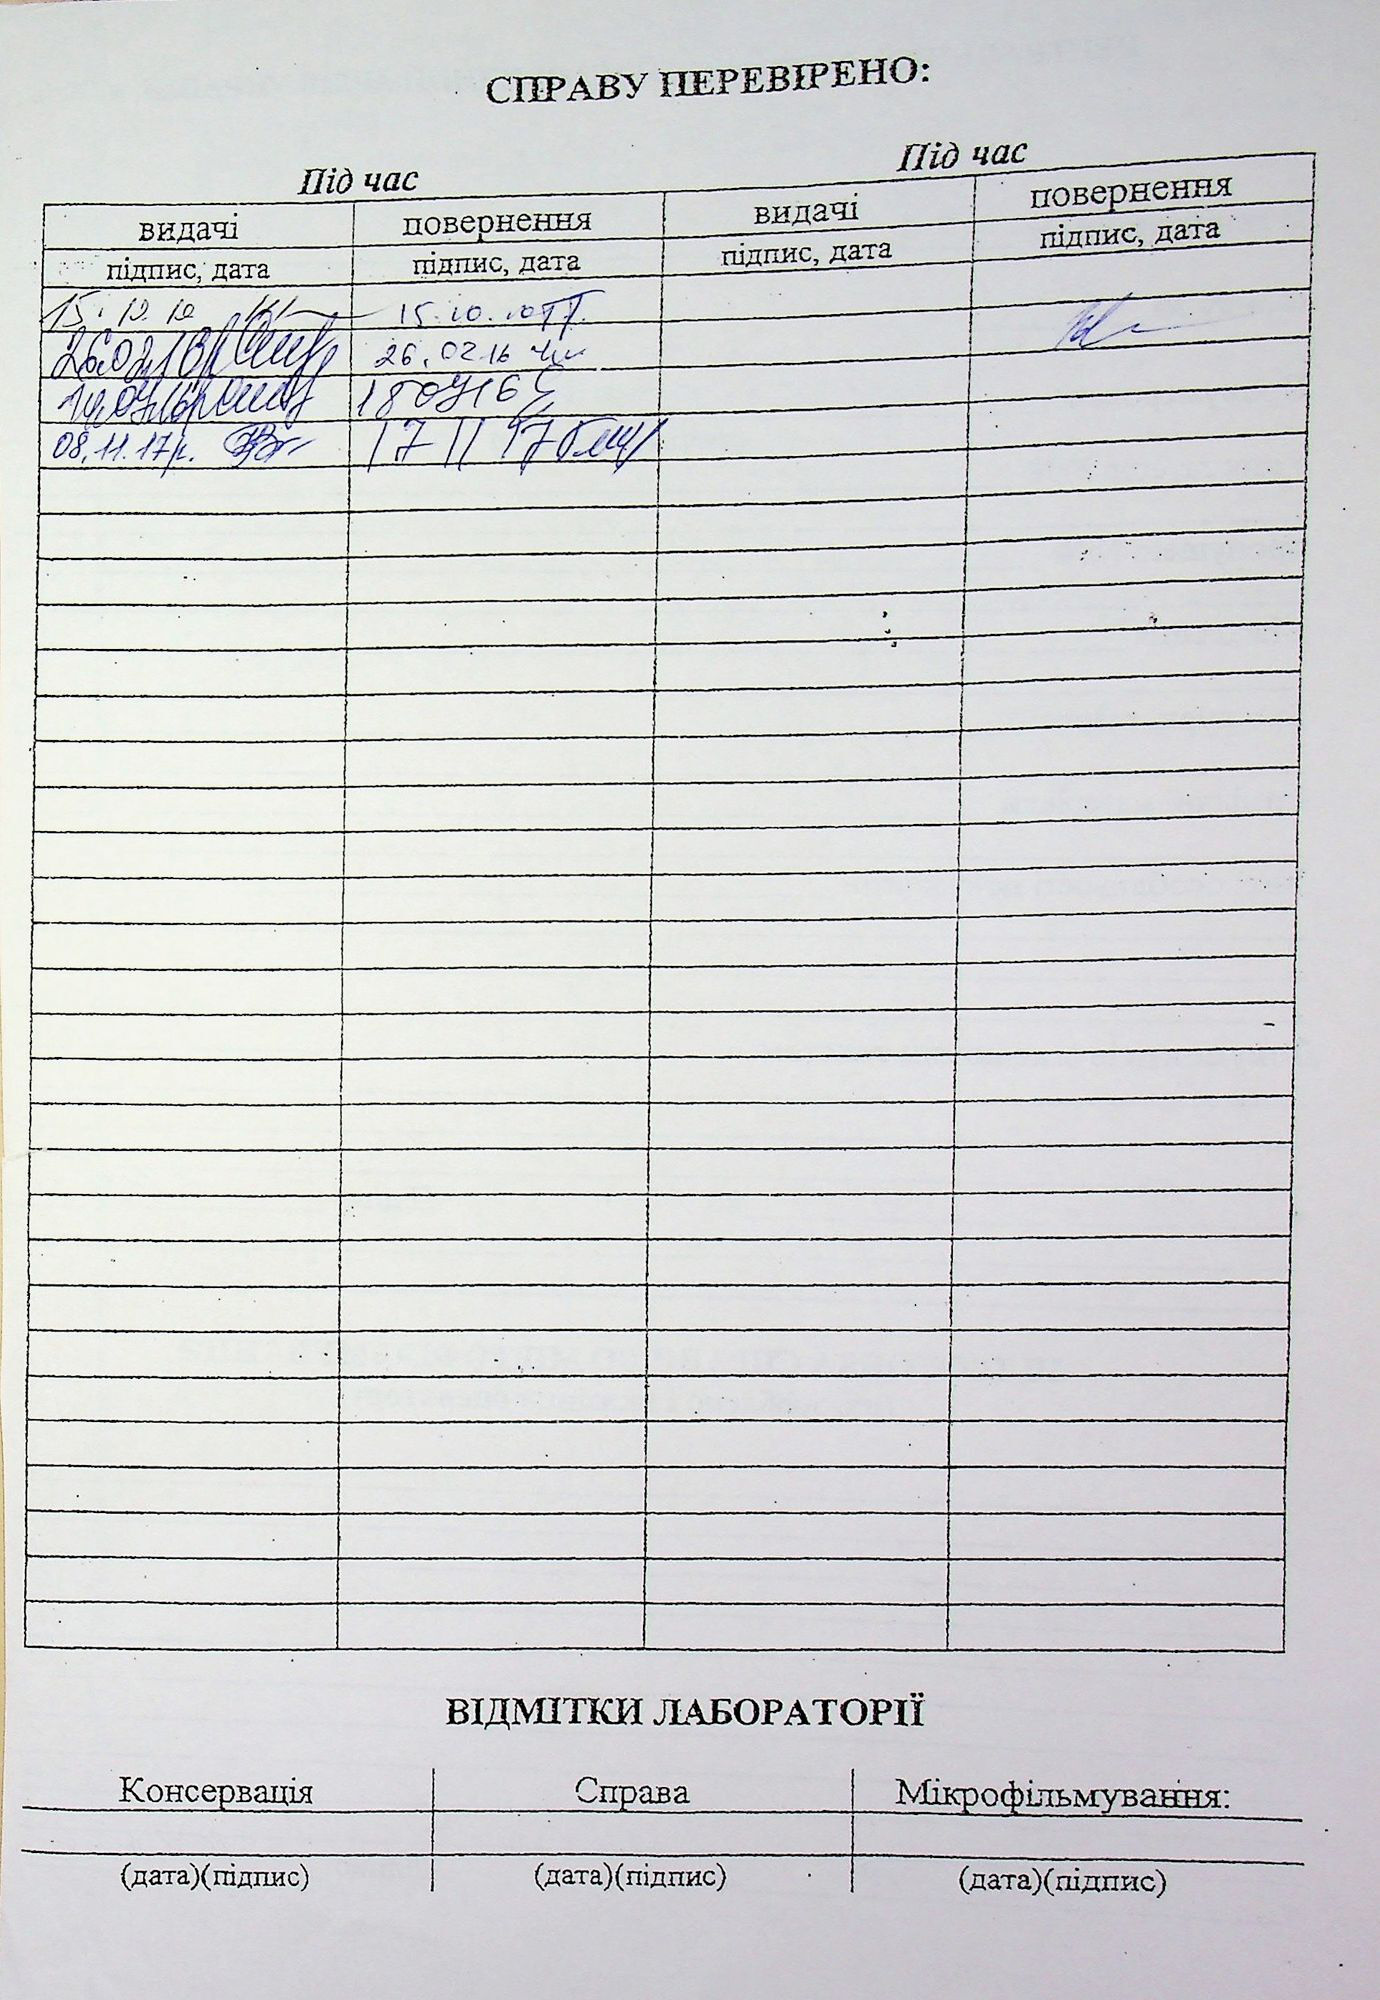 СПРАВУ ПЕРЕВІРЕНО:
Під час Під час
видачі повернення видачі повернення
підпис, дата підпис, дата підпис, дата підпис, дата
15.10.10 15.10.10
26.02.16 26.02.16
18 04 16
08.11.17р. 17 11 17
ВІДМІТКИ ЛАБОРАТОРІЇ
Консервація Справа Мікрофільмування:
(дата)(підпис) (дата)(підпис) (дата)(підпис)